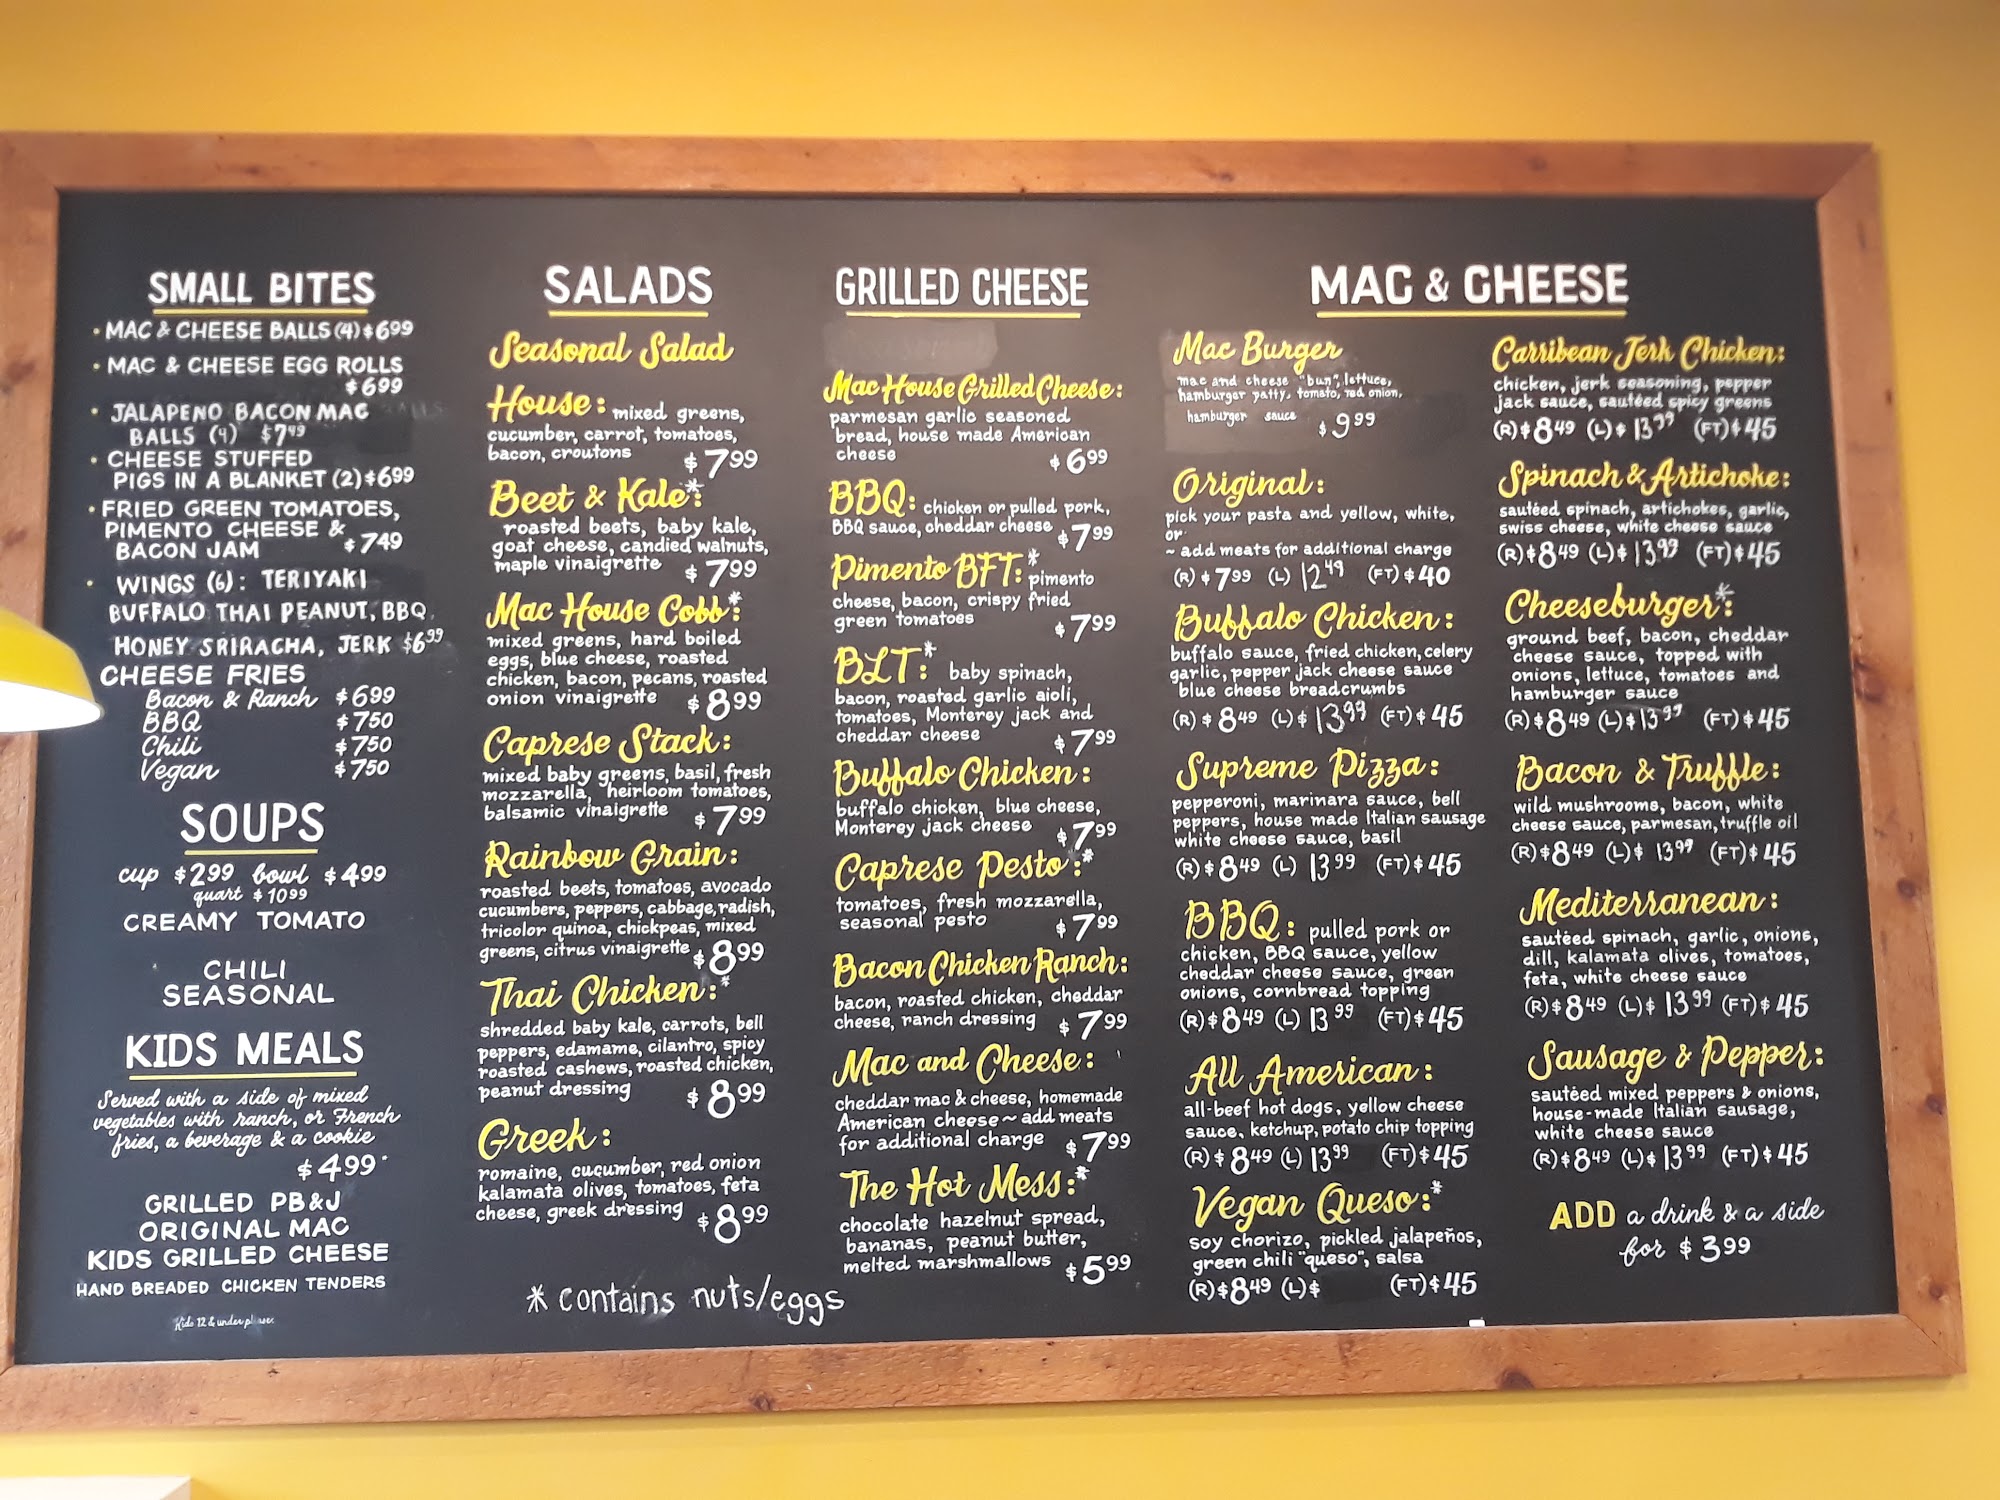 SMALL BITES
• MAC & CHEESE BALLS (4) $6.99
• MAC & CHEESE EGG ROLLS
$6.99
• JALAPENO BACON MAC
BALLS (4) $7.49
• CHEESE STUFFED
PIGS IN A BLANKET (2) $6.99
• FRIED GREEN TOMATOES,
PIMENTO CHEESE &
BACON JAM $7.49
• WINGS (6): TERIYAKI
BUFFALO THAI PEANUT, BBQ,
HONEY SRIRACHA, JERK $6.99
CHEESE FRIES
Bacon & Ranch $6.99
BBQ $7.50
Chili $7.50
Vegan $7.50
SOUPS
cup $2.99 bowl $4.99
quart $10.99
CREAMY TOMATO
CHILI
SEASONAL
KIDS MEALS
Served with a side of mixed
vegetables with ranch, or French
fries, a beverage & a cookie
$4.99
GRILLED PB&J
ORIGINAL MAC
KIDS GRILLED CHEESE
HAND BREADED CHICKEN TENDERS
Kids 12 & under please.
SALADS
Seasonal Salad
House: mixed greens,
cucumber, carrot, tomatoes,
bacon, croutons $7.99
Beet & Kale*:
roasted beets, baby kale,
goat cheese, candied walnuts,
maple vinaigrette $7.99
Mac House Cobb*:
mixed greens, hard boiled
eggs, blue cheese, roasted
chicken, bacon, pecans, roasted
onion vinaigrette $8.99
Caprese Stack:
mixed baby greens, basil, fresh
mozzarella, heirloom tomatoes,
balsamic vinaigrette $7.99
Rainbow Grain:
roasted beets, tomatoes, avocado
cucumbers, peppers, cabbage, radish,
tricolor quinoa, chickpeas, mixed
greens, citrus vinaigrette $8.99
Thai Chicken:*
shredded baby kale, carrots, bell
peppers, edamame, cilantro, spicy
roasted cashews, roasted chicken,
peanut dressing $8.99
Greek:
romaine, cucumber, red onion
kalamata olives, tomatoes, feta
cheese, greek dressing $8.99
* contains nuts/eggs
GRILLED CHEESE
Mac House Grilled Cheese:
parmesan garlic seasoned
bread, house made American
cheese $6.99
BBQ: chicken or pulled pork,
BBQ sauce, cheddar cheese $7.99
Pimento BFT:* pimento
cheese, bacon, crispy fried
green tomatoes $7.99
BLT:* baby spinach,
bacon, roasted garlic aioli,
tomatoes, Monterey jack and
cheddar cheese $7.99
Buffalo Chicken:
buffalo chicken, blue cheese,
Monterey jack cheese $7.99
Caprese Pesto:*
tomatoes, fresh mozzarella,
seasonal pesto $7.99
Bacon Chicken Ranch:
bacon, roasted chicken, cheddar
cheese, ranch dressing $7.99
Mac and Cheese:
cheddar mac & cheese, homemade
American cheese ~ add meats
for additional charge $7.99
The Hot Mess:*
chocolate hazelnut spread,
bananas, peanut butter,
melted marshmallows $5.99
MAC & CHEESE
Mac Burger
mac and cheese "bun", lettuce,
hamburger patty, tomato, red onion,
hamburger sauce $9.99
Original:
pick your pasta and yellow, white,
or
~ add meats for additional charge
(R) $7.99 (L) 12.49 (FT) $40
Buffalo Chicken:
buffalo sauce, fried chicken, celery
garlic, pepper jack cheese sauce
blue cheese breadcrumbs
(R) $8.49 (L) $13.99 (FT) $45
Supreme Pizza:
pepperoni, marinara sauce, bell
peppers, house made Italian sausage
white cheese sauce, basil
(R) $8.49 (L) 13.99 (FT) $45
BBQ: pulled pork or
chicken, BBQ sauce, yellow
cheddar cheese sauce, green
onions, cornbread topping
(R) $8.49 (L) 13.99 (FT) $45
All American:
all-beef hot dogs, yellow cheese
sauce, ketchup, potato chip topping
(R) $8.49 (L) 13.99 (FT) $45
Vegan Queso:*
soy chorizo, pickled jalapeños,
green chili "queso", salsa
(R) $8.49 (L) $ (FT) $45
Carribean Jerk Chicken:
chicken, jerk seasoning, pepper
jack sauce, sautéed spicy greens
(R) $8.49 (L) $13.99 (FT) $45
Spinach & Artichoke:
sautéed spinach, artichokes, garlic,
swiss cheese, white cheese sauce
(R) $8.49 (L) $13.99 (FT) $45
Cheeseburger*:
ground beef, bacon, cheddar
cheese sauce, topped with
onions, lettuce, tomatoes and
hamburger sauce
(R) $8.49 (L) $13.99 (FT) $45
Bacon & Truffle:
wild mushrooms, bacon, white
cheese sauce, parmesan, truffle oil
(R) $8.49 (L) $13.99 (FT) $45
Mediterranean:
sautéed spinach, garlic, onions,
dill, kalamata olives, tomatoes,
feta, white cheese sauce
(R) $8.49 (L) $13.99 (FT) $45
Sausage & Pepper:
sautéed mixed peppers & onions,
house-made Italian sausage,
white cheese sauce
(R) $8.49 (L) $13.99 (FT) $45
ADD a drink & a side
for $3.99